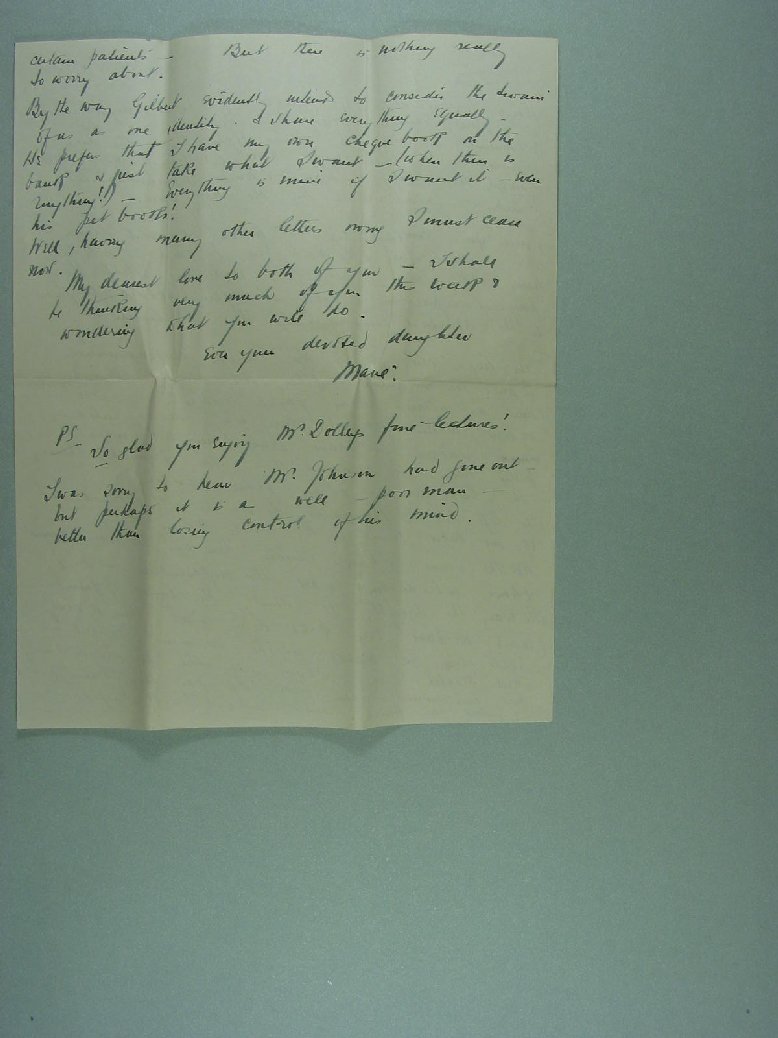 certain patients — But there is nothing really
to worry about.
By the way Gilbert evidently intends to consider the
of us as one identity & share everything equally —
He prefers that I have my own cheque book on the
bank & just take what I want — (when there is
anything!) — Everything is mine if I want it — even
his pet books!
Well, having many other letters owing I must cease
now.
My dearest love to both of you — I shall
be thinking very much of you this week &
wondering what you will do.
Ever your devoted daughter
PS — So glad you enjoy Mr. Dolleys fine lectures!
I was sorry to hear Mr. Johnson had gone out —
but perhaps it is as well — poor man —
better than losing control of his mind.